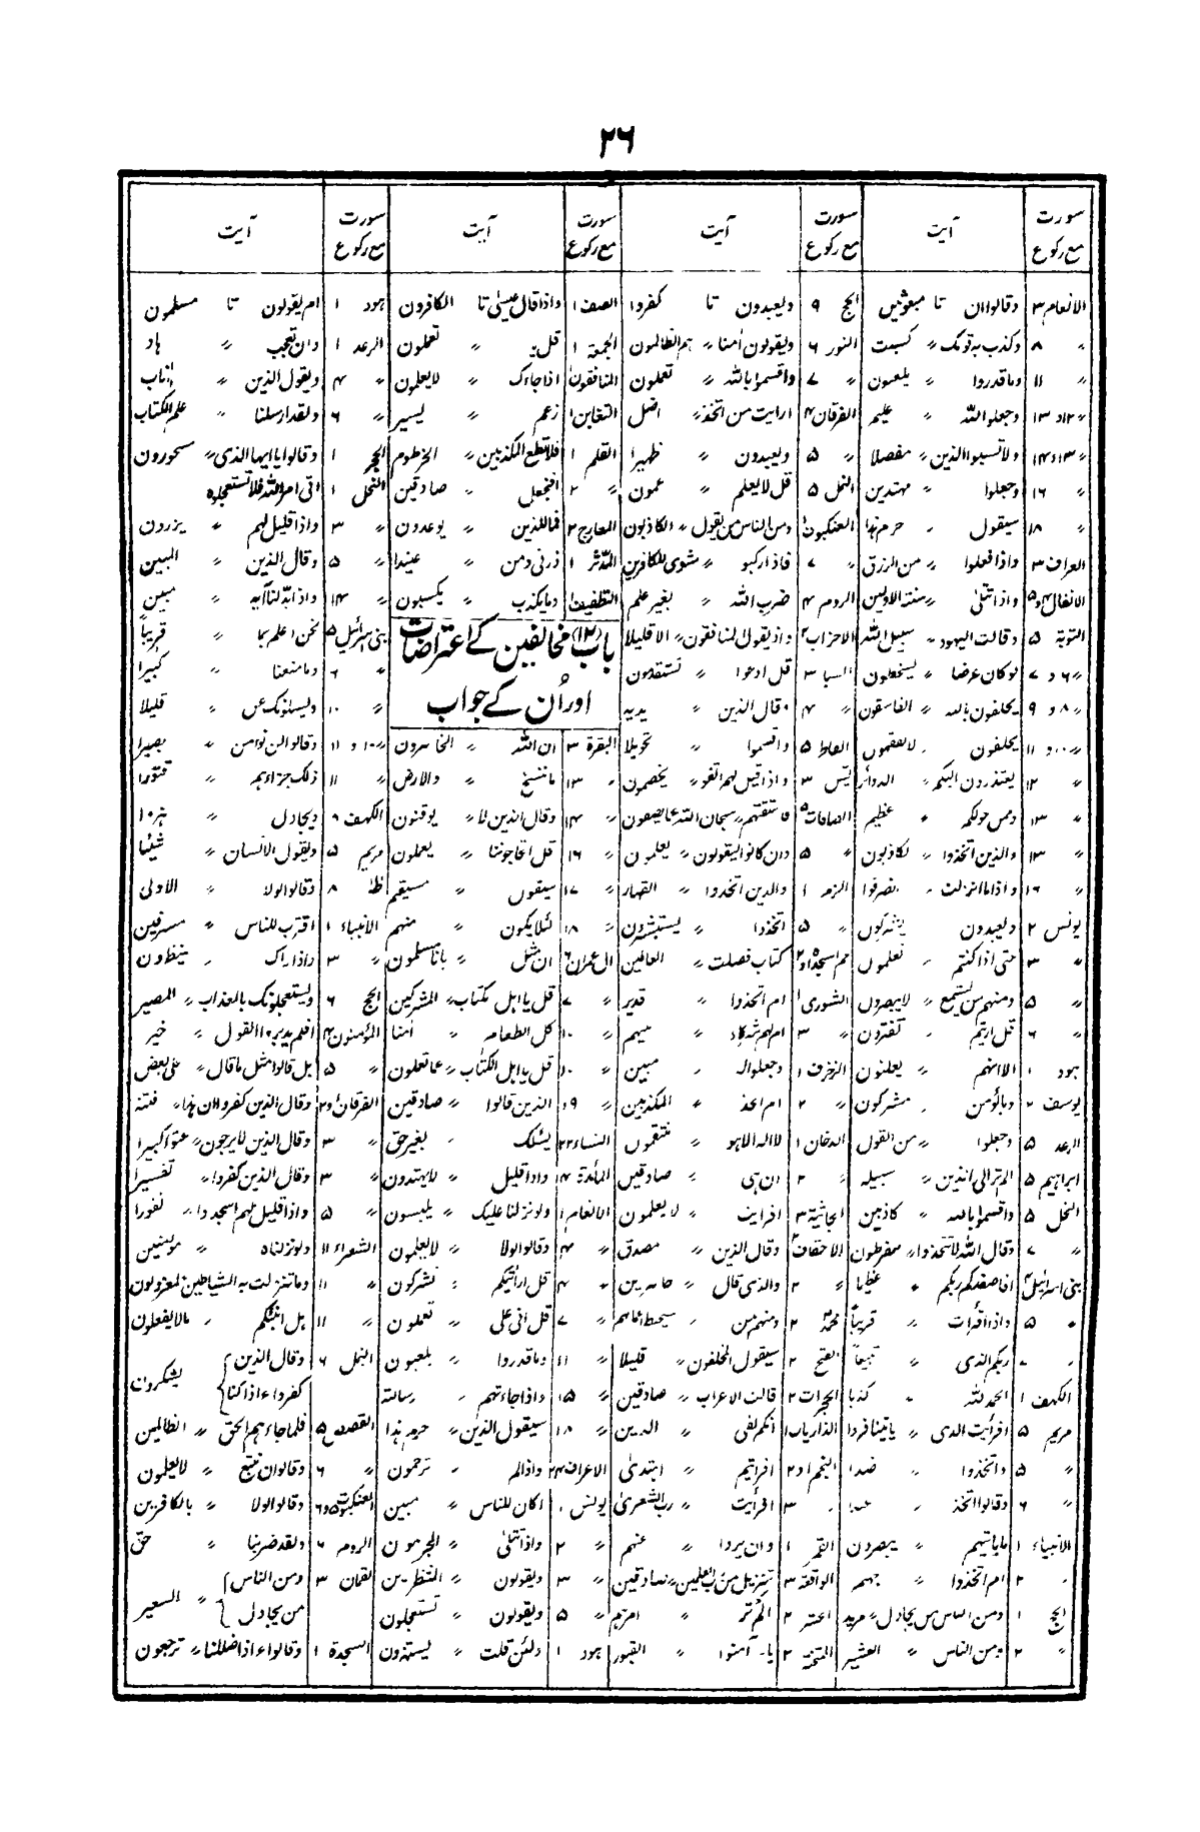 ۲۶
سورت مع رکوع آیت سورت مع رکوع آیت سورت مع رکوع آیت سورت مع رکوع آیت
الانعام ۳ وقالوا ان تا مبعوثین الحج ۹ ویعبدون تا کفروا الصف ۱ واذ اقال عیسیٰ تا الکافرون ہود ۱ ام یقولون تا مسلمون
〃 ۸ وکذب بہ قومک 〃 کسبت النور ۶ ویقولون اٰمنا 〃 ہم الظالمون الجمعۃ ۱ قل 〃 تعملون الرعد ۱ وان تعجب 〃 ہاد
〃 ۱۱ وما قدروا 〃 یلعبون 〃 ۷ واقسموا باللہ 〃 تعملون المنافقون ۱ اذا جاءک 〃 لایعلمون 〃 ۴ ویقول الذین 〃 اناب
〃 ۱۲و ۱۳ وجعلوا للہ 〃 علیم الفرقان ۴ ارایت من اتخذ 〃 اضل التغابن ۱ زعم 〃 یسیر 〃 ۶ ولقد ارسلنا 〃 علم الکتاب
〃 ۱۳و۱۴ ولا تسبوا الذین 〃 مفصلا 〃 ۵ ویعبدون 〃 ظہیرا القلم ۱ فلا تطع المکذبین 〃 الخرطوم الحجر ۱ وقالوا یا ایہا الذی 〃 مسحورون
〃 ۱۶ وجعلوا 〃 مہتدین النمل ۵ قل لا یعلم 〃 عمون 〃 ۲ افنجعل 〃 صادقین النحل ۱ اتی امر اللہ فلا تستعجلوہ
〃 ۱۸ سیقول 〃 حرم ہذا العنکبوت ۱ ومن الناس من یقول 〃 الکاذبون المعارج ۲ فمال الذین 〃 یوعدون 〃 ۳ واذا قیل لہم 〃 یزرون
العراف ۳ واذا فعلوا 〃 من الرزق 〃 ۷ فاذا رکبوا 〃 مثوی للکافرین المدثر ۱ ذرنی ومن 〃 عنیدا 〃 ۵ وقال الذین 〃 المبین
الانفال ۴و۵ واذا تتلیٰ 〃 سنۃ الاولین الروم ۴ ضرب اللہ 〃 بغیر علم التطفیف ۱ وما یکذب 〃 یکسبون 〃 ۱۴ واذا بدلنا آیۃ 〃 مبین
باب (۱۲) مخالفین کے اعتراضات
اور اُن کے جواب
التوبۃ ۵ وقالت الیہود 〃 سبیل اللہ الاحزاب ۲ واذ یقول المنافقون 〃 الا قلیلا بنی اسرائیل ۵ نحن اعلم بما 〃 قریباً
〃 ۶ و ۷ لو کان عرضا 〃 السبا ۳ قل ادعوا 〃 تستقدمون 〃 ۶ وما منعنا 〃 کبیرا
〃 ۸ و ۹ یحلفون باللہ 〃 الفاسقون 〃 ۴ وقال الذین 〃 یدیہ 〃 ۱۰ ویسئلونک عن 〃 قلیلا
〃 ۱۰و ۱۱ یحلفون 〃 لایفقہون الفاطر ۵ واقسموا 〃 تحویلا البقرۃ ۳ ان اللہ 〃 الخاسرون 〃 ۱۰ و ۱۱ وقالوا لن نؤمن 〃 بصیرا
〃 ۱۲ یعتذرون الیکم 〃 الدوائر یٰس ۳ واذا قیل لہم اتقوا 〃 یخصمون 〃 ۱۳ ما ننسخ 〃 والارض 〃 ۱۱ ذلک جزاءہم 〃 قتورا
〃 ۱۳ وممن حولکم 〃 عظیم الصافات ۵ فاستفتہم 〃 سبحان اللہ عما یصفون 〃 ۱۴ وقال الذین لا 〃 یوقنون الکہف ۸ ویجادل 〃 ہزوا
〃 ۱۳ والذین اتخذوا 〃 لکاذبون 〃 ۵ وان کانوا لیقولون 〃 یعلمون 〃 ۱۶ قل اتحاجوننا 〃 یعملون مریم ۵ ویقول الانسان 〃 شیئا
〃 ۱۶ واذا ما انزلت 〃 الزمر ۱ والذین اتخذوا 〃 القہار 〃 ۱۷ سیقول 〃 مستقیم طہٰ ۸ وقالوا لولا 〃 الاولی
یونس ۲ ویعبدون 〃 یشرکون 〃 ۵ اتخذوا 〃 یستبشرون 〃 ۱۸ لئلا یکون 〃 منہم الانبیاء ۱ اقترب للناس 〃 مسرفین
〃 ۳ حتی اذا کنتم 〃 تعملون حم السجدہ ۱و۲ کتاب فصلت 〃 العالمین ال عمران ۶ ان مثل 〃 بانا مسلمون 〃 ۳ واذا راک 〃 ینظرون
〃 ۵ ومنہم من یستمع 〃 لایبصرون الشوری ۱ ام اتخذوا 〃 قدیر 〃 ۷ قل یا اہل کتاب 〃 المشرکین الحج ۶ ویستعجلونک بالعذاب 〃 المصیر
〃 ۶ قل ارایتم 〃 تفترون 〃 ۳ ام لہم شرکاء 〃 〃 ۱۰ کل الطعام 〃 اٰمنا المؤمنون ۴ افلم یدبروا القول 〃 خیر
ہود ۱ الا انہم 〃 یعلنون الزخرف ۱ وجعلوا لہ 〃 مبین 〃 ۱۰ قل یا اہل الکتاب 〃 عما تعملون 〃 ۵ بل قالوا مثل ما قال 〃 علی بعض
یوسف ۲ وما یؤمن 〃 مشرکون 〃 ۲ ام اتخذ 〃 المکذبین 〃 ۱۹ الذین قالوا 〃 صادقین الفرقان ۱و۲ وقال الذین کفروا ان ہذا 〃 فتنۃ
الرعد ۵ وجعلوا 〃 من القول الدخان ۱ لا الہ الا ہو 〃 منتقمون النساء ۲۲ یسئلک 〃 بغیر حق 〃 ۳ وقال الذین لا یرجون 〃 عتوا کبیرا
ابراہیم ۵ الم تر الی الذین 〃 سبیلہ 〃 ۲ ان ہی 〃 صادقین المائدۃ ۱۴ واذا قیل 〃 لایہتدون 〃 ۳ وقال الذین کفروا 〃 تفسیرا
النحل ۵ واقسموا باللہ 〃 کاذبین الجاثیۃ ۳ افرایت 〃 لا یعلمون الانعام ۱ ولو نزلنا علیک 〃 یلبسون 〃 ۵ واذا قیل لہم اسجدوا 〃 نفورا
〃 ۷ وقال اللہ لا تتخذوا 〃 مفرطون الاحقاف ۲ وقال الذین 〃 مصدق 〃 ۴ وقالوا لولا 〃 لایعلمون الشعراء ۱۱ ولو نزلناہ 〃 مؤمنین
بنی اسرائیل ۴ افاصفٰکم ربکم 〃 عظیما 〃 ۲ والذی قال 〃 خاسرین 〃 ۴ قل ارأیتکم 〃 تشرکون 〃 ۱۱ وما تنزلت بہ الشیاطین لمعزولون
〃 ۵ واذا قرأت 〃 قریباً محمد ۲ ومنہم من 〃 〃 ۷ قل انی علی 〃 تعملون 〃 ۱۱ ہل انبئکم 〃 مالا یفعلون
〃 ۷ ربکم الذی 〃 تبیعاً الفتح ۲ سیقول المخلفون 〃 قلیلا 〃 ۱۱ وما قدروا 〃 یلعبون النمل ۶ وقال الذین کفروا ءاذا کنا 〃 یشکرون
الکہف ۱ الحمد للہ 〃 کذبا الحجرات ۲ قالت الاعراب 〃 صادقین 〃 ۱۵ واذا جاءتہم 〃 رسالتہ
مریم ۵ افرأیت الذی 〃 یاتینا فردا الذاریات ۱ انکم لفی 〃 الدین 〃 ۱۸ سیقول الذین 〃 حرم ہذا القصص ۵ فلما جاءہم الحق 〃 الظالمین
〃 ۵ واتخذوا 〃 ضدا النجم ۱و۲ افرأیتم 〃 اہتدیٰ الاعراف ۲۴ واذا لم 〃 ترحمون 〃 ۶ وقالوا ان نتبع 〃 لایعلمون
〃 ۶ وقالوا اتخذ 〃 عبدا 〃 ۳ افرأیت 〃 رب الشعریٰ یونس ۱ اکان للناس 〃 مبین العنکبوت ۵و۶ وقالوا لولا 〃 بالکافرین
الانبیاء ۱ ما یاتیہم 〃 یبصرون القمر ۱ وان یروا 〃 عنہم 〃 ۲ واذا تتلیٰ 〃 المجرمون الروم ۶ ولقد ضربنا 〃 حق
〃 ۲ ام اتخذوا 〃 جہنم الواقعۃ ۳ تنزیل من رب العلمین 〃 صادقین 〃 ۳ ویقولون 〃 المنتظرین لقمان ۳ ومن الناس من یجادل 〃 السعیر
الحج ۱ ومن الناس من یجادل 〃 مرید الحشر ۲ الم تر 〃 〃 ۵ ویقولون 〃 تستعجلون
〃 ۲ ومن الناس 〃 العشیر الممتحنہ ۲ یا۔ آمنوا 〃 القبور ہود ۱ ولئن قلت 〃 یستہزءون السجدۃ ۱ وقالوا ءاذا ضللنا 〃 ترجعون